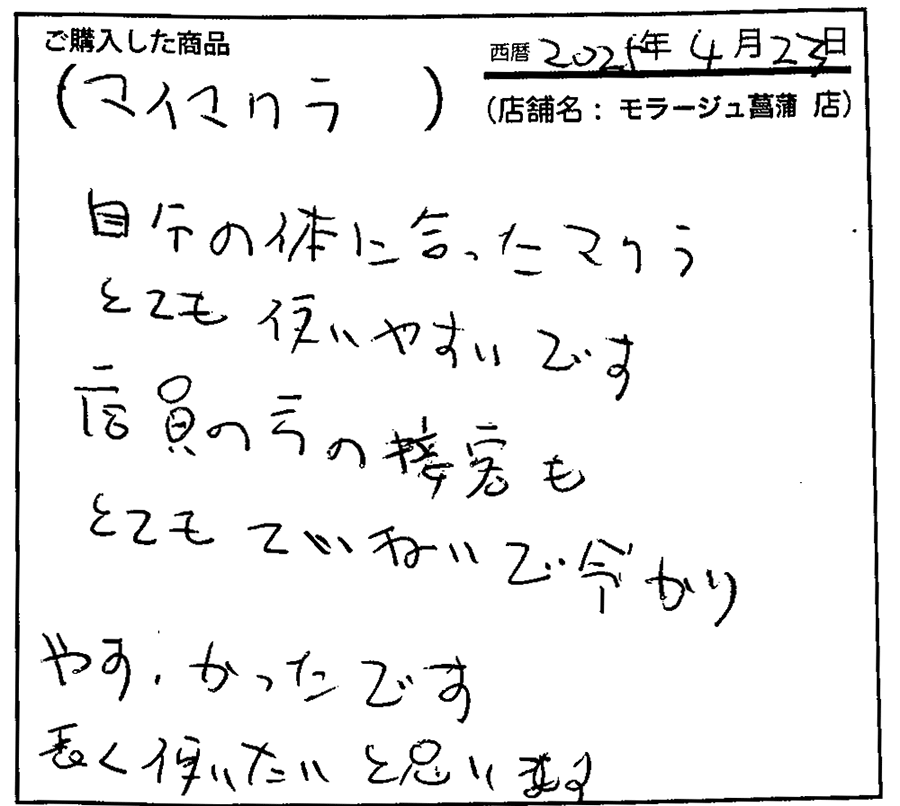 ご購入した商品
西暦 2025年 4月23日
(マイマクラ )
(店舗名: モラージュ菖蒲 店)
自分の体に合ったマクラ
とても使いやすいです
店員の方の接客も
とてもていねいで分かり
やすかったです
長く使いたいと思います